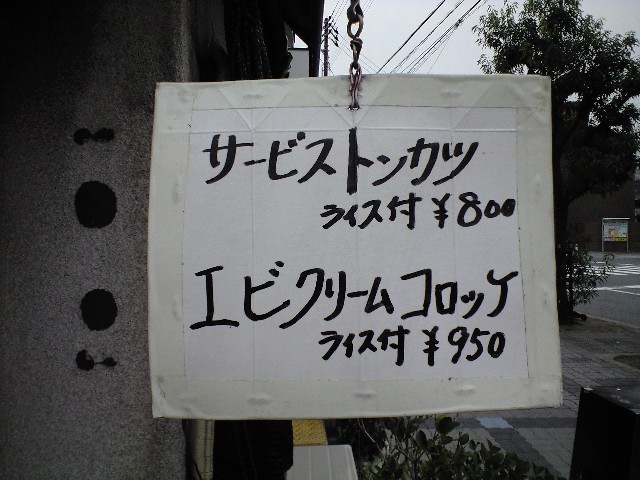 サービストンカツ
ライス付 ¥800
エビクリームコロッケ
ライス付 ¥950